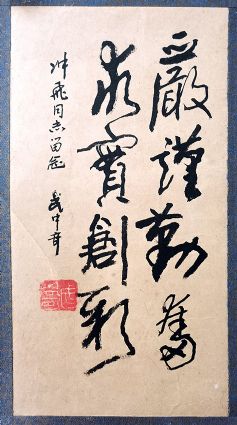 嚴謹勤奮
求實創新
冲飛同志留念